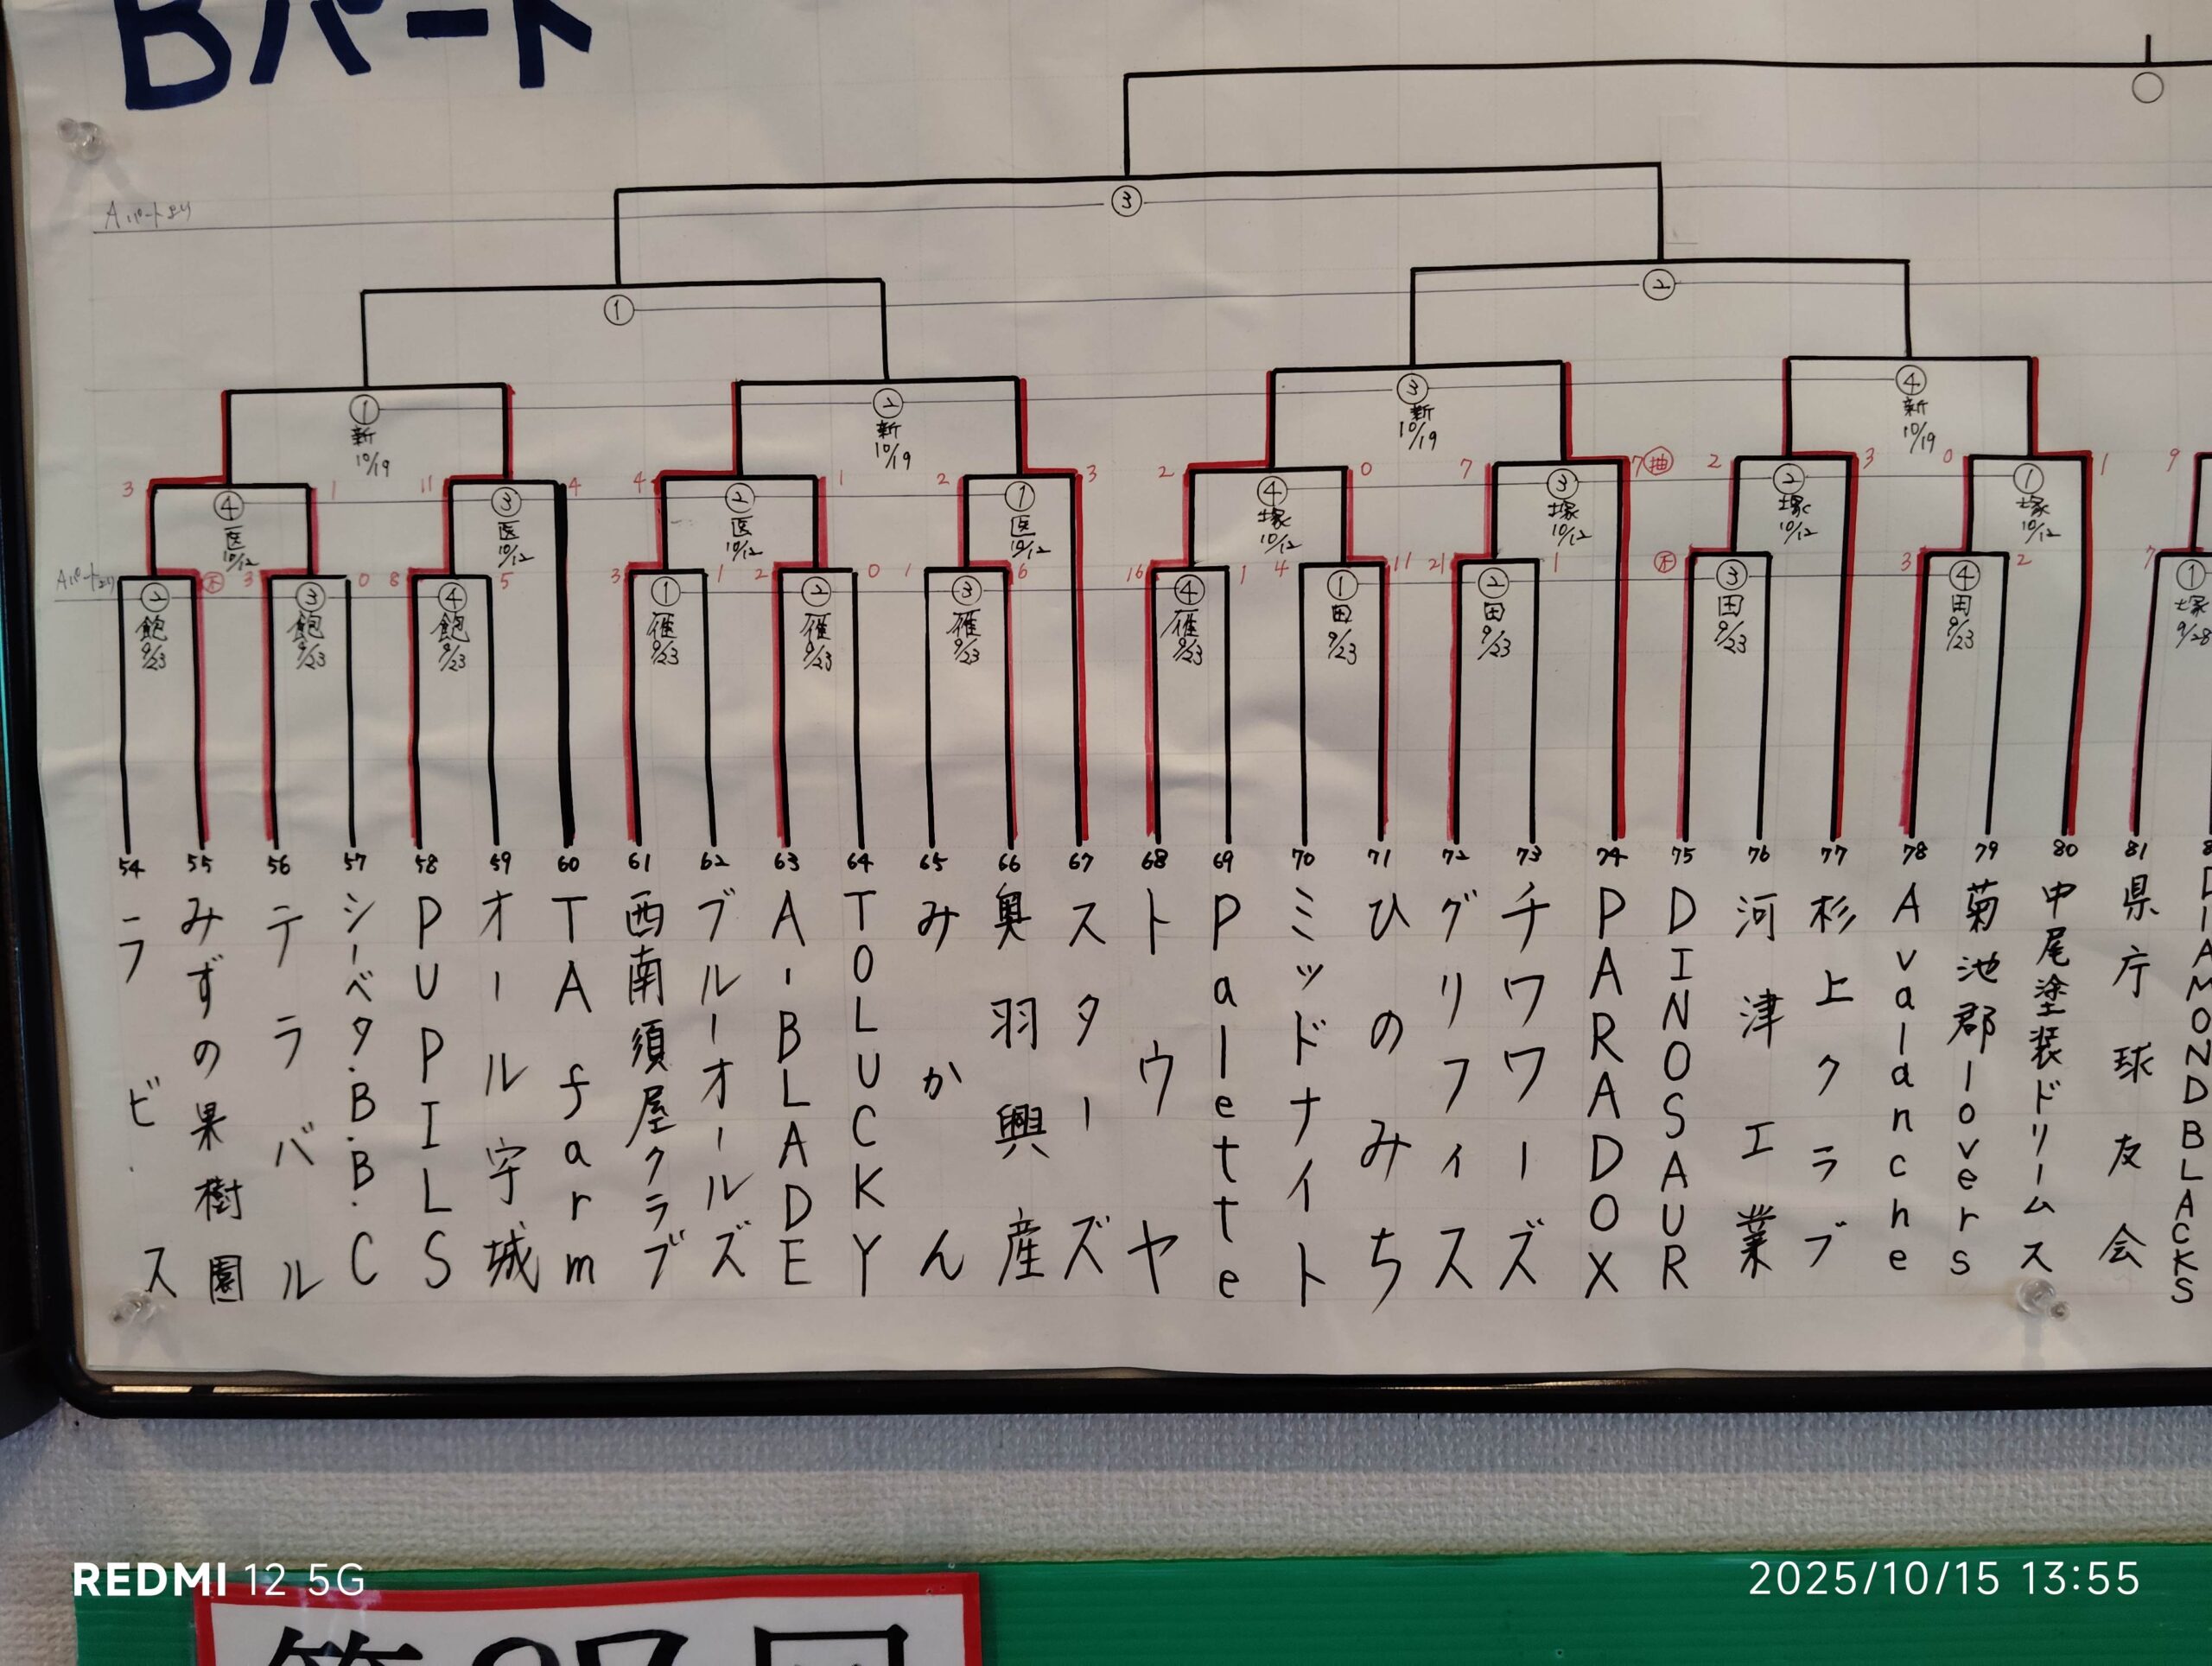 Bパート
③
Aパートより
①
②
①
新
10/19
②
新
10/19
③
新
10/19
④
新
10/19
3
④
医
10/12
1
11
③
医
10/12
4
4
②
医
10/12
1
2
①
医
10/12
3
2
④
塚
10/12
0
7
③
塚
10/12
7
抽
2
②
塚
10/12
3
0
①
塚
10/12
1
9
Aパートより
②
飽
9/23
不
3
③
飽
9/23
0
8
④
飽
9/23
5
3
①
雁
9/23
1
2
②
雁
9/23
0
1
③
雁
9/23
6
16
④
雁
9/23
1
4
①
田
9/23
11
21
②
田
9/23
1
不
③
田
9/23
3
④
田
9/23
2
7
①
塚
9/28
54 ラビス
55 みずの果樹園
56 テラバル
57 シーベタ.B.B.C
58 PUPILS
59 オール宇城
60 TA farm
61 西南須屋クラブ
62 ブルーオールズ
63 A-BLADE
64 TOLUCKY
65 みかん
66 奥羽興産
67 スターズ
68 トウヤ
69 Palette
70 ミッドナイト
71 ひのみち
72 グリフィス
73 チワワーズ
74 PARADOX
75 DINOSAUR
76 河津工業
77 杉上クラブ
78 Avalanche
79 菊池郡lovers
80 中尾塗装ドリームス
81 県庁球友会
DIAMOND BLACKS
REDMI 12 5G
2025/10/15 13:55